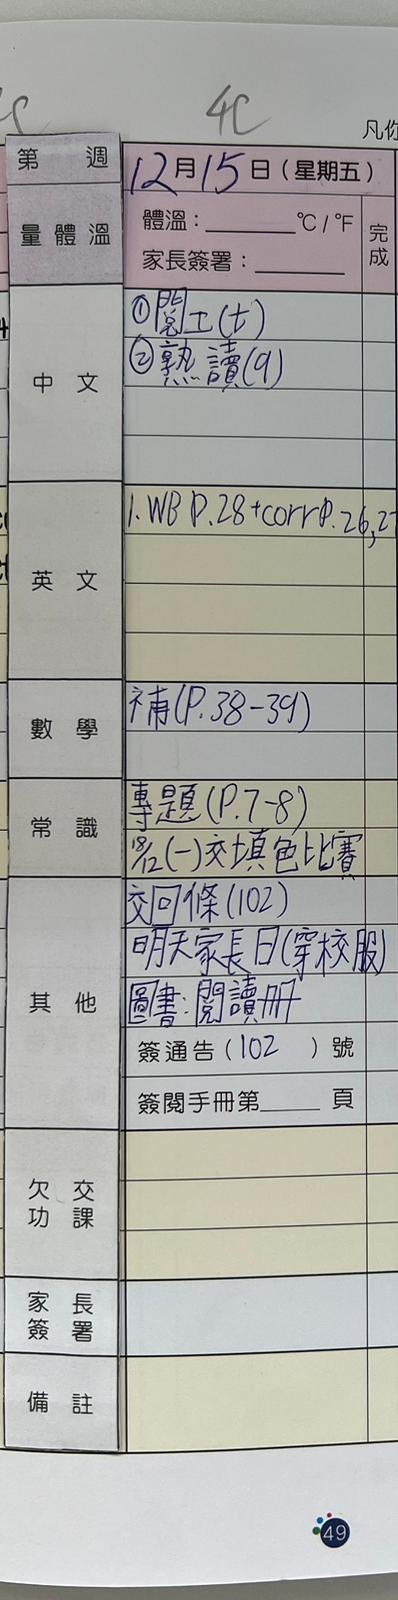 4C
凡你
第 週
12月15日（星期五）
量體溫
體溫：______℃/℉
家長簽署：______
完成
中文
①閱工(七)
②熟讀(9)
英文
1. WB P.28+corr P.26,27
數學
補(P.38-39)
常識
專題(P.7-8)
18/12(一)交填色比賽
其他
交回條(102)
明天家長日(穿校服)
圖書:閱讀冊
簽通告（102）號
簽閱手冊第____頁
欠交功課
家長簽署
備註
49